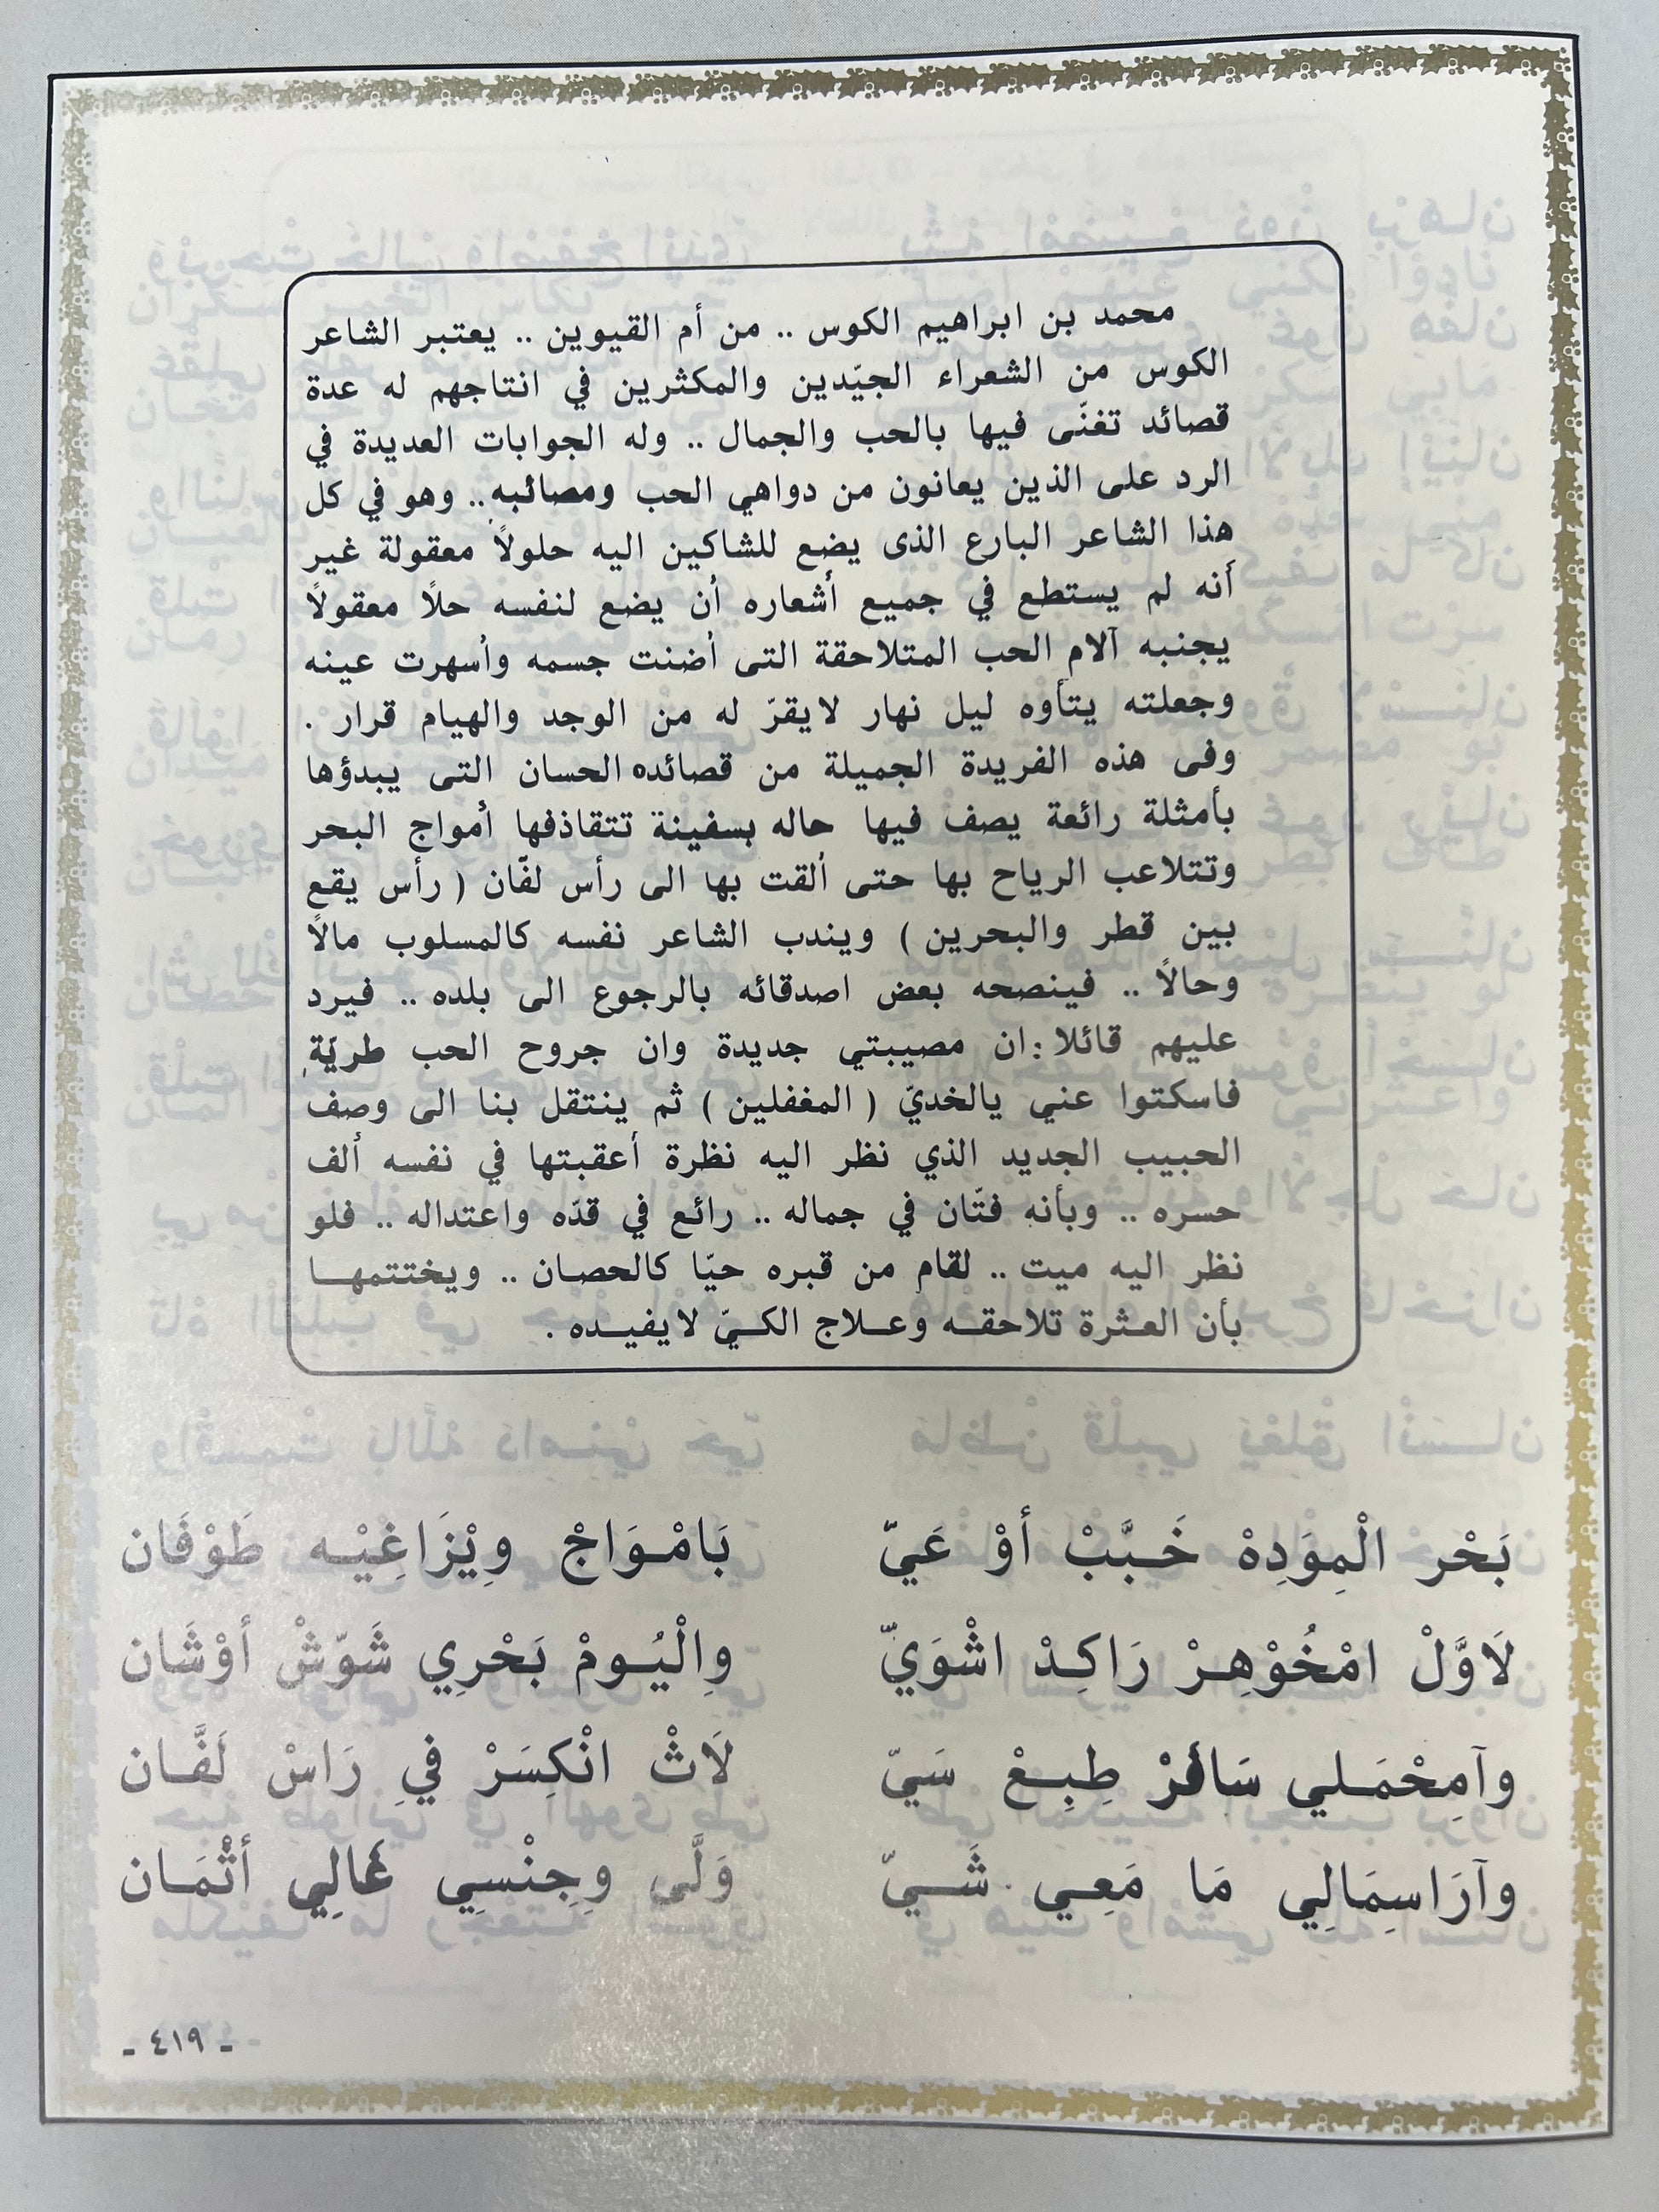 محمد بن ابراهيم الكوس .. من أم القيوين .. يعتبر الشاعر
الكوس من الشعراء الجيّدين والمكثرين في انتاجهم له عدة
قصائد تغنّى فيها بالحب والجمال .. وله الجوابات العديدة في
الرد على الذين يعانون من دواهي الحب ومصائبه .. وهو في كل
هذا الشاعر البارع الذى يضع للشاكين اليه حلولاً معقولة غير
أنه لم يستطع في جميع أشعاره أن يضع لنفسه حلاً معقولاً
يجنبه آلام الحب المتلاحقة التى أضنت جسمه وأسهرت عينه
وجعلته يتأوه ليل نهار لايقرّ له من الوجد والهيام قرار .
وفى هذه الفريدة الجميلة من قصائده الحسان التى يبدؤها
بأمثلة رائعة يصف فيها حاله بسفينة تتقاذفها أمواج البحر
وتتلاعب الرياح بها حتى ألقت بها الى رأس لفّان ( رأس يقع
بين قطر والبحرين ) ويندب الشاعر نفسه كالمسلوب مالاً
وحالاً .. فينصحه بعض اصدقائه بالرجوع الى بلده .. فيرد
عليهم قائلا : ان مصيبتي جديدة وان جروح الحب طريّة
فاسكتوا عني يالخديّ ( المغفلين ) ثم ينتقل بنا الى وصف
الحبيب الجديد الذي نظر اليه نظرة أعقبتها في نفسه ألف
حسره .. وبأنه فتّان في جماله .. رائع في قدّه واعتداله .. فلو
نظر اليه ميت .. لقام من قبره حيّا كالحصان .. ويختتمهـا
بأن العثرة تلاحقـه وعـلاج الكـيّ لايفيـده .
بَحْر الْمِوَدِهْ خَـبَّبْ أوْ عَيّ بَامْـوَاجْ وِيْزَاغِيْـه طَوْفَان
لَاوَّلْ امْخُوْهِـرْ رَاكِـدْ اشْوَيّ وِالْيُـومْ بَحْرِي شَوّشْ أوْشَان
وآمِحْمَـلي سَافَرْ طِبِـعْ سَيّ لَاثْ انْكِسَرْ فيِ رَاسْ لَفَّـان
وآرَاسِمَالِي مَا مَعِـي شَـيّ وَلَّى وِجِنْسِي غَالِي أثْمَـان
ـ ٤١٩ ـ